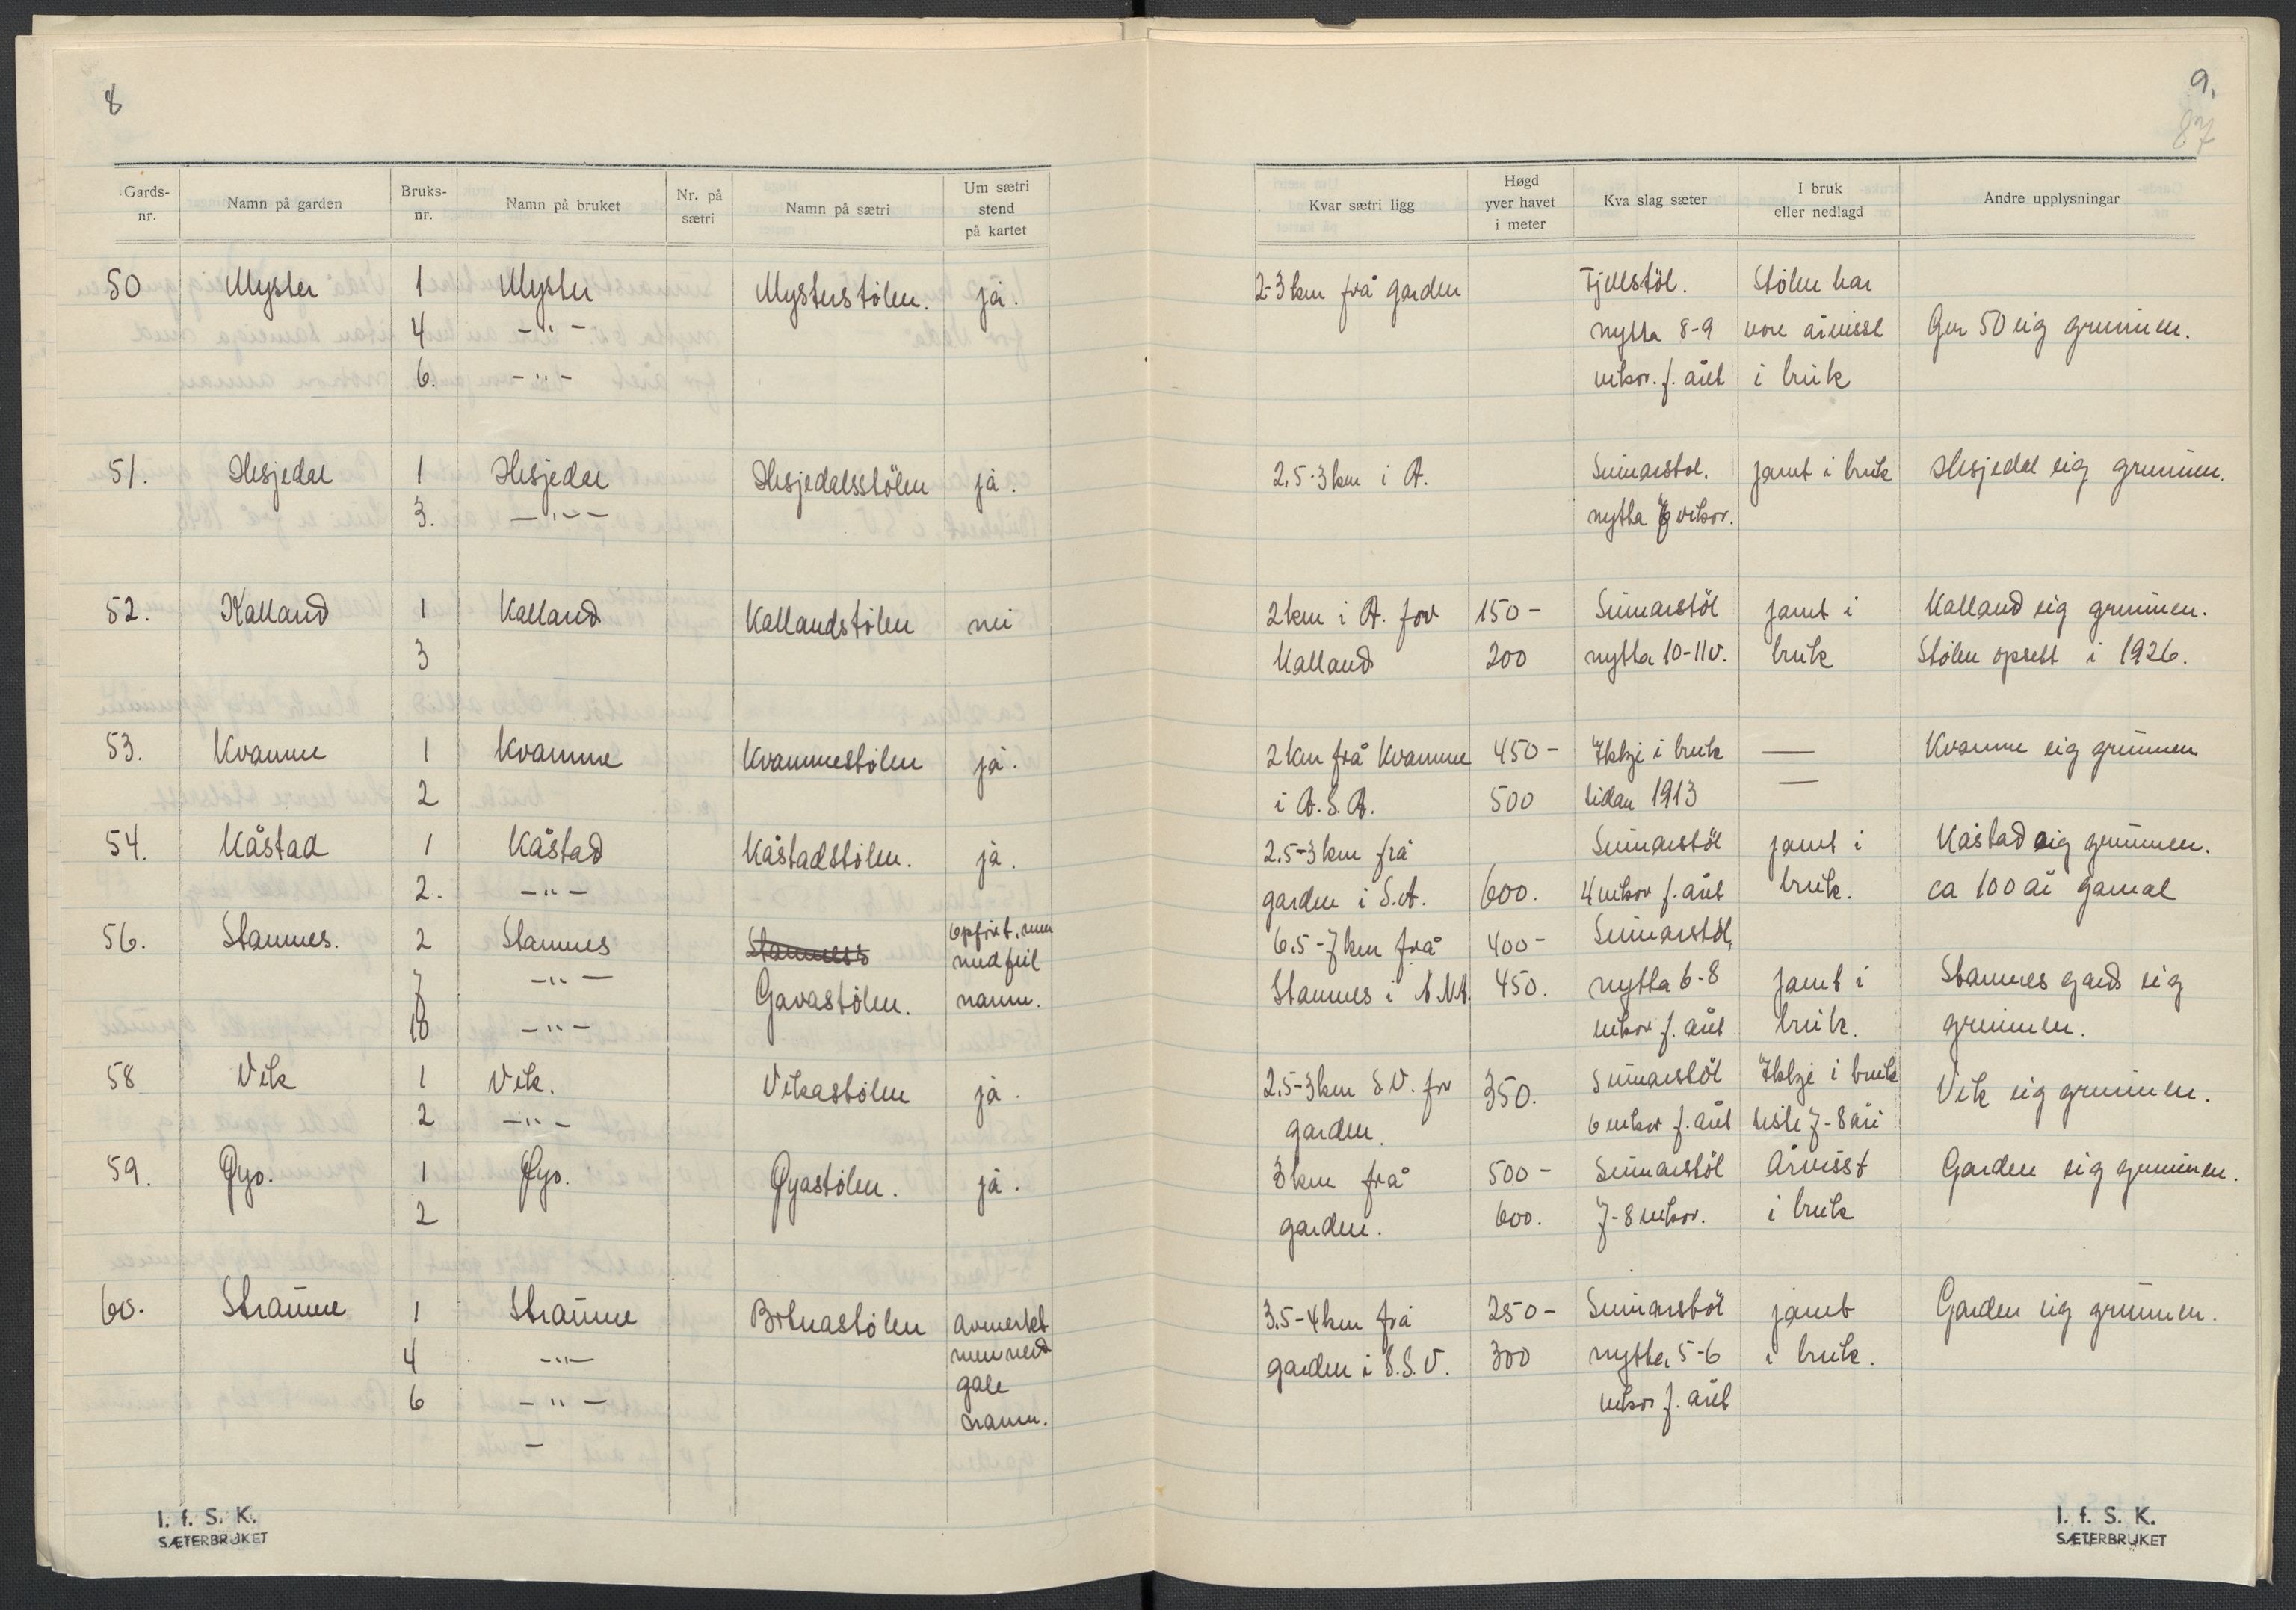 8
Gards-nr. Namn på garden Bruks-nr. Namn på bruket Nr. på sætri Namn på sætri Um sætri stend på kartet
50 Myster 1 Myster Mysterstølen. ja.
4 -"-
6. -"-
51. Hesjedal 1 Hesjedal Hesjedalsstølen ja.
3. -"-
52. Kalland 1 Kalland Kallandstølen nei
3
53. Kvamme 1 Kvamme Kvammestølen ja.
2
54. Kåstad 1 Kåstad Kåstadstølen. ja.
2. -"-
56. Stamnes. 2 Stamnes opført, men
7 -"- Gavastølen. med feil
10 -"- namn.
58 Vik 1 Vik. Vikastølen ja.
2 -"-
59. Øyo. 1 Øyo. Øyastølen. ja.
2
60. Straume 1 Straume Botnastølen avmerkt
4 -"- men med
6 -"- gale
- namn.
I. f. S. K.
SÆTERBRUKET
9.
87
Kvar sætri ligg Høgd yver havet i meter Kva slag sæter I bruk eller nedlagd Andre upplysningar
2-3 km frå garden Fjellstøl. Stølen har
nytta 8-9 vore årvisst Gnr 50 eig grunnen.
vikor. f. året i bruk
2,5-3 km i A. Sumarstøl. jamt i bruk Hesjedal eig grunnen.
nytta 6 vikor.
2 km i A. for 150- Sumarstøl jamt i Kalland eig grunnen.
Kalland 200 nytta 10-11 v. bruk Stølen opsett i 1926.
2 km frå Kvamme 450- Ikkje i bruk — Kvamme eig grunnen
i A.S.A. 500 sidan 1913 —
2,5-3 km frå Sumarstøl jamt i Kåstad eig grunnen.
garden i S.A. 600. 4 vikor f. året bruk. ca 100 år gamal
6,5-7 km frå 400- Sumarstøl,
Stamnes i A.N.A. 450. nytta 6-8 jamt i Stamnes gard eig
vikor f. året bruk. grunnen.
2,5-3 km S.V. for 350. Sumarstøl Ikkje i bruk Vik eig grunnen.
garden. 6 vikor f. året siste 7-8 åri
3 km frå 500- Sumarstøl Årvisst Garden eig grunnen.
garden. 600. 7-8 vikor. i bruk
3,5-4 km frå 250- Sumarstøl jamt Garden eig grunnen.
garden i S.S.V. 300 nytta 5-6 i bruk.
vikor f. året
I. f. S. K.
SÆTERBRUKET